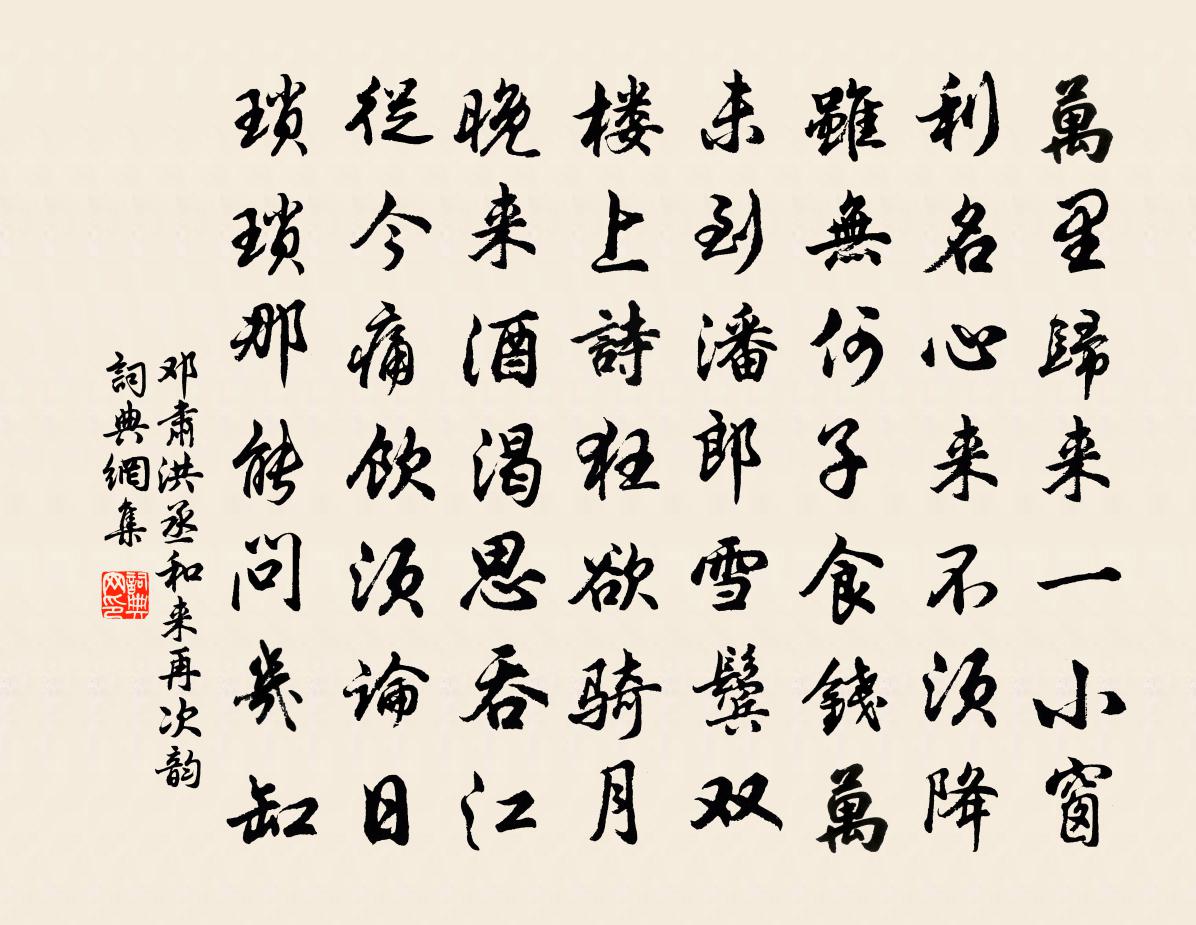 萬里歸来一小窗
利名心来不須降
雖無何子食錢萬
未到潘郎雪鬓双
楼上詩狂欲騎月
晚来酒渴思吞江
從今痛飲須論日
瑣瑣那能問幾缸
邓肃洪丞和来再次韵
詞典網集
詞典网印